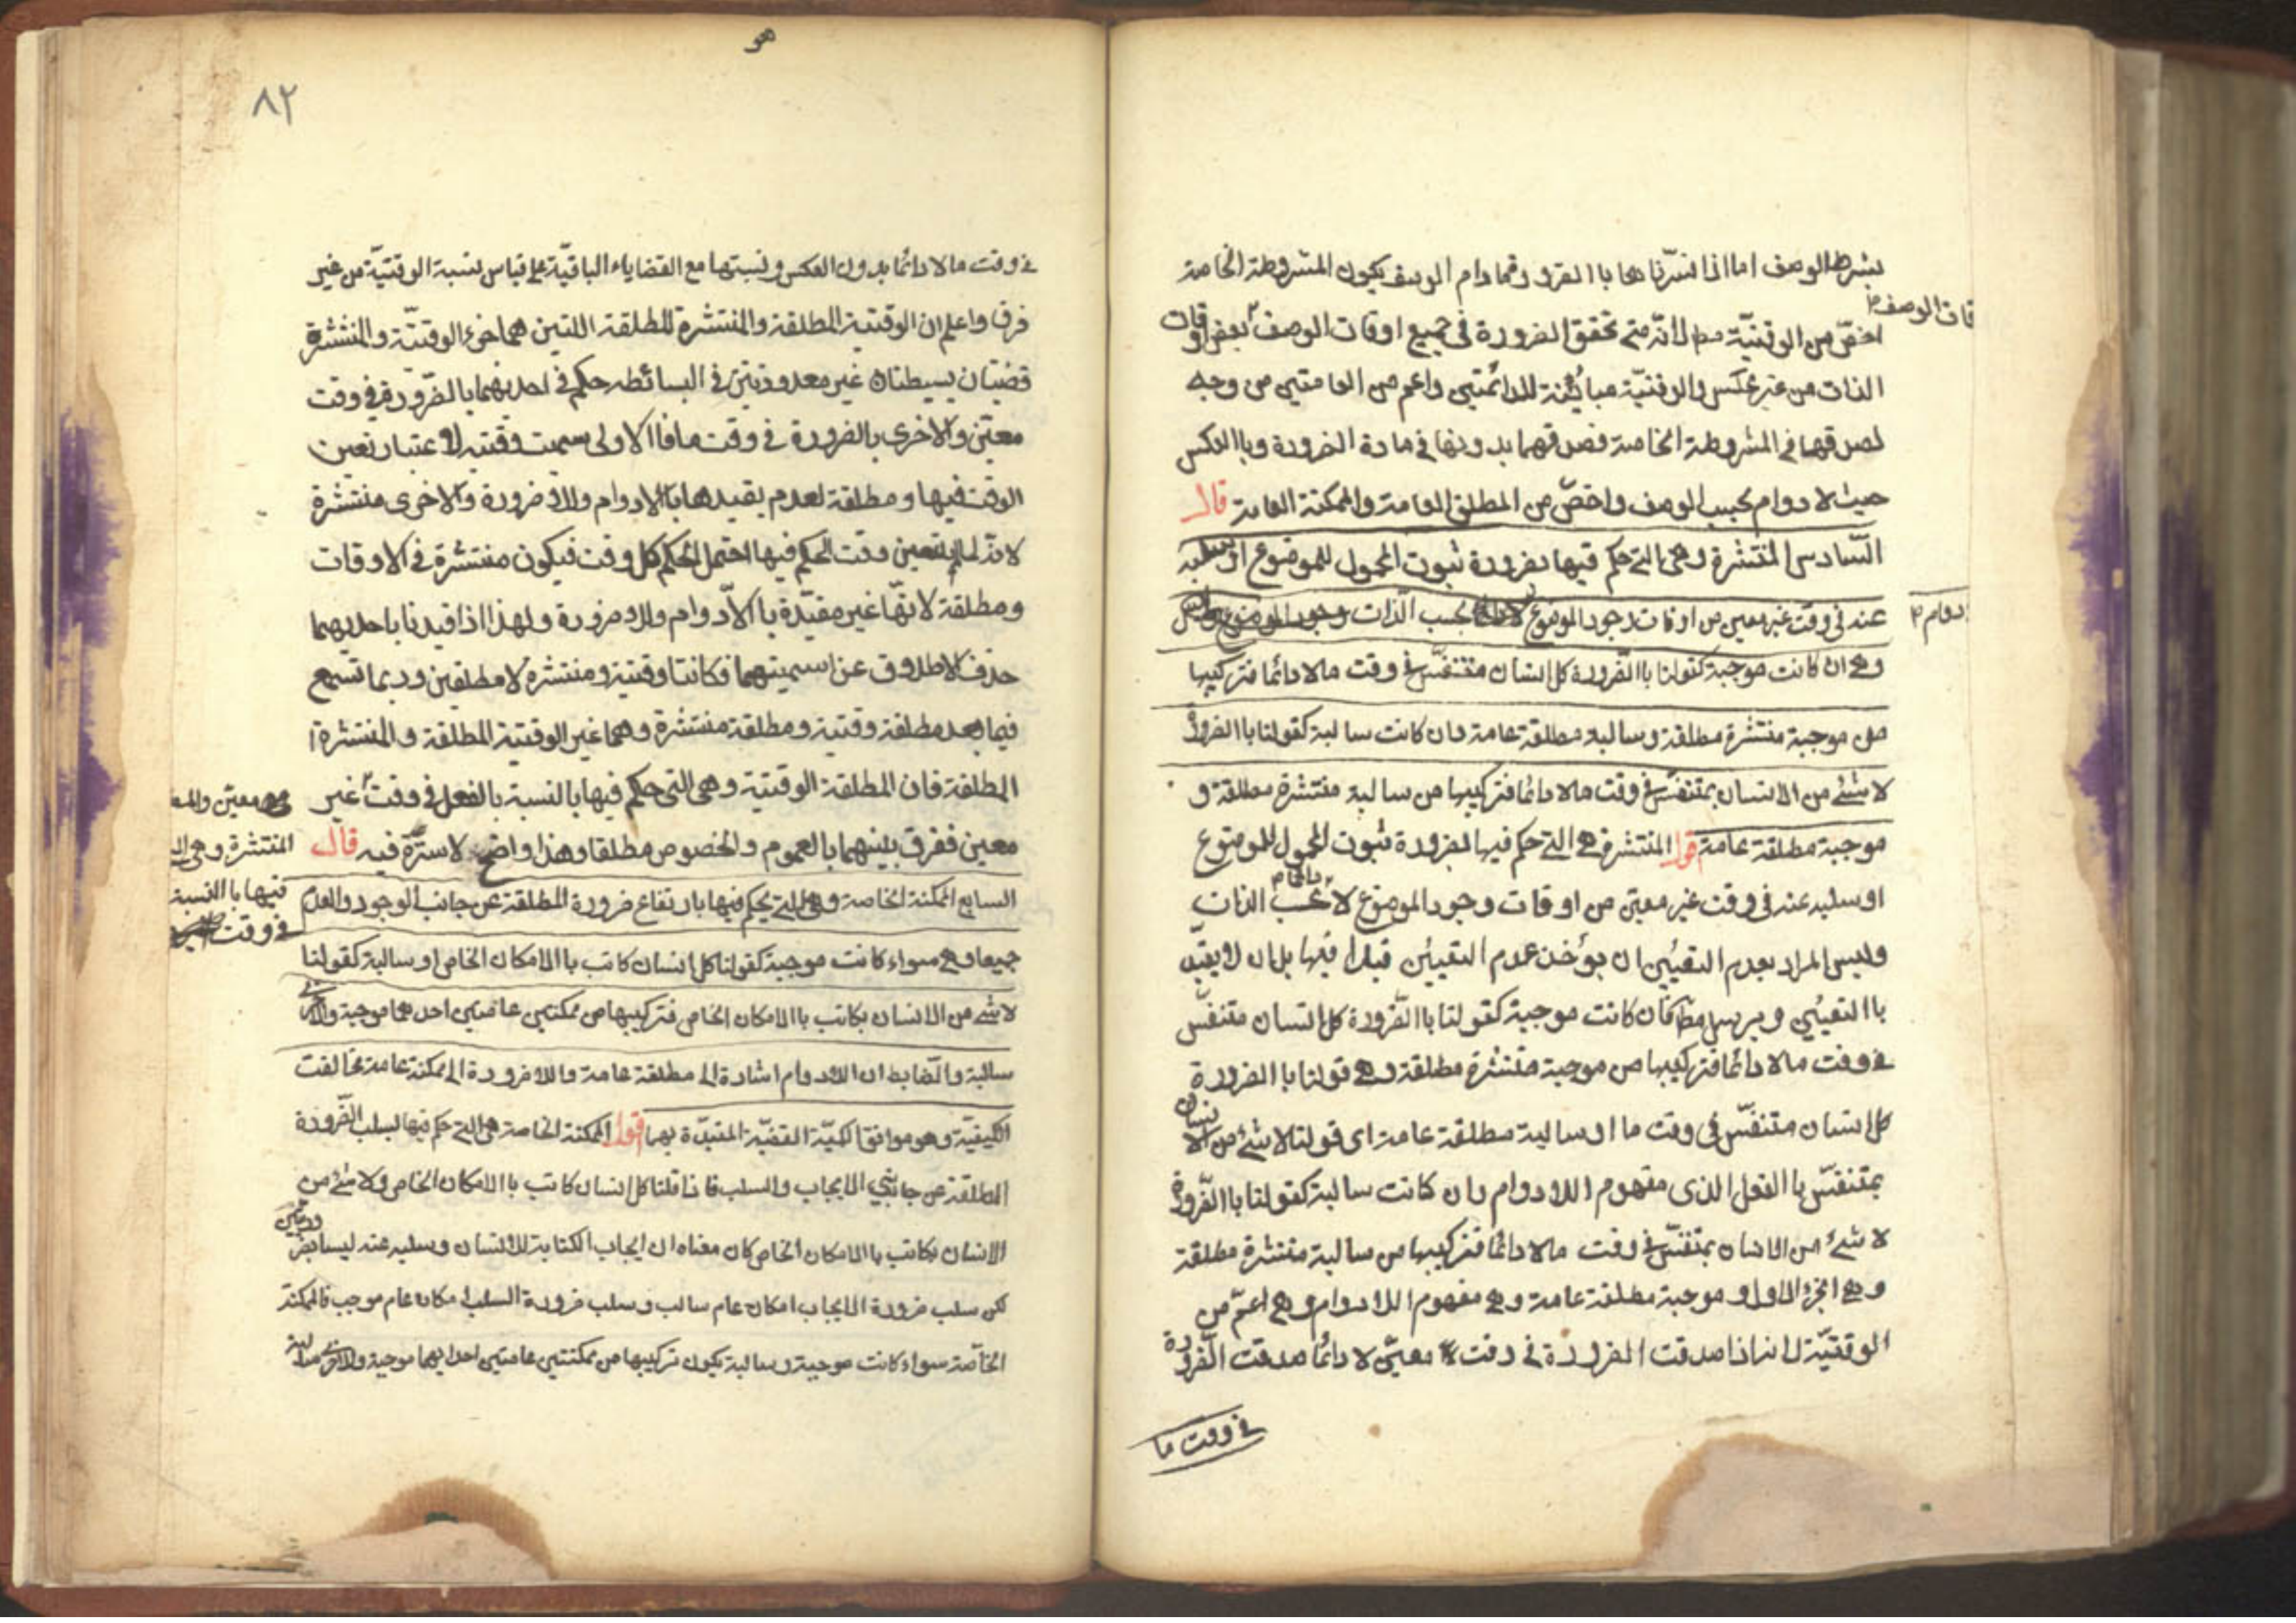 بشرط الوصف اما اذا فسّرناها باالضرورة مادام الوصف يكون المشروطة الخاصة
قات الوصف
اخصّ من الوقتيّة مط لانّه متى تحقق الضرورة فى جميع اوقات الوصف بعض اوقات
الذات من غير عكس والوقتيّة مبائنة للدائمتين واعم من العامتين من وجه
لصدقها فى المشروطة الخاصة فصدقهما بدونها فى مادة الضرورة وباالعكس
حيث لا دوام بحسب الوصف واخصّ من المطلق العامة والممكنة العامة قال
السّادس المنتشرة وهى التى حكم فيها بضرورة ثبوت المحمول للموضوع او سلبه
عنه فى وقت غير معين من اوقات وجود الموضوع بحسب الذات
دوام
وهى ان كانت موجبة كقولنا باالضّرورة كل انسان متنفّس فى وقت ما لا دائما فتركيبها
من موجبة منتشرة مطلقة وسالبة مطلقة عامة وان كانت سالبة كقولنا باالضرورة
لا شئ من الانسان بمتنفّس فى وقت ما لا دائما فتركيبها من سالبة منتشرة مطلقة و
موجبة مطلقة عامة قول المنتشرة هى التى حكم فيها بضرورة ثبوت المحمول للموضوع
او سلبه عنه فى وقت غير معيّن من اوقات وجود الموضوع لا دائما بحسب الذات
وليس المراد بعدم التعيّين ان يؤخذ عدم التعيّن قيدا فيها بل ان لا يقيّد
باالتعيّن ويرسل مط فان كانت موجبة كقولنا باالضّرورة كل انسان متنفّس
فى وقت ما لا دائما فتركيبها من موجبة منتشرة مطلقة وهى قولنا باالضرورة
كل انسان متنفّس فى وقت ما او سالبة مطلقة عامة اى قولنا لا شئ من الانسان
بمتنفّس باالفعل الذى مفهوم اللادوام وان كانت سالبة كقولنا باالضّرورة
لا شئ من الانسان بمتنفّس فى وقت ما لا دائما فتركيبها من سالبة منتشرة مطلقة
وهى الجزء الاول و موجبة مطلقة عامة وهى مفهوم اللادوام وهى اعمّ من
الوقتيّة لانه اذا صدقت الضرورة فى وقت معيّن لا دائمًا صدقت الضّرورة
فى وقت ما
هو
٨٢
فى وقت ما لا دائما بدون العكس ونسبتها مع القضاياء الباقيّة على قياس نسبة الوقتيّة من غير
فرق واعلم ان الوقتية المطلقة والمنتشرة المطلقة اللتين هما جزء الوقتيّة والمنتشرة
قضيتان بسيطتان غير معدودتين فى البسائط حكم فى احديهما بالضّرورة فى وقت
معيّن والاخرى بالضرورة فى وقت ما فاالاولى سميت وقتيه لاعتبار تعين
الوقت فيها ومطلقة لعدم تقيدها باللادوام واللاضرورة والاخرى منتشرة
لانّه لما لم يتعين وقت الحكم فيها احتمل الحكم كل وقت فيكون منتشرة فى الاوقات
ومطلقة لانّها غير مقيّدة باالاّدوام واللاضرورة ولهذا اذا قيدنا باحديهما
حذف الاطلاق عن اسميتهما فكانتا وقتية ومنتشرة لا مطلقين وربما تسمع
فيما بعد مطلقة وقتية ومطلقة منتشرة وهما غير الوقتية المطلقة والمنتشرة
المطلقة فان المطلقة الوقتية وهى التى حكم فيها بالنسبة بالفعل فى وقت غير
معين والمط
المنتشرة وهى
فيها باالنسبة
فى وقت
معين ففرق بينهما بالعموم والخصوص مطلقا وهذا واضح لا سترة فيه قال
السابع الممكنة الخاصة وهى التى يحكم فيها بارتفاع ضرورة المطلقة عن جانب الوجود والعدم
جميعا وهى سواء كانت موجبة كقولنا كل انسان كاتب باالامكان الخاص او سالبة كقولنا
لا شئ من الانسان بكاتب باالامكان الخاص فتركيبها من ممكنتين عامتين احدهما موجبة والاخرى
سالبة والضابط ان اللادوام اشارة الى مطلقة عامة واللاضرورة الى ممكنة عامة مخالفت
الكيفية وهو موافق الكميّة القضيّة المقيدة بهما اقول الممكنة الخاصة هى التى حكم فيها بسلب الضّرورة
المطلقة عن جانبى الايجاب والسلب فاذا قلنا كل انسان كاتب باالامكان الخاص ولا شئ من
الانسان بكاتب باالامكان الخاص كان معناه ان ايجاب الكتابة للانسان وسلبه عنه ليسا بضروريين
لكن سلب ضرورة الايجاب امكان عام سالب وسلب ضرورة السلب امكان عام موجب فالممكنة
الخاصّة سواء كانت موجبة وسالبة يكون تركيبها من ممكنتين عامتين احدايهما موجبة والاخرى سالبة